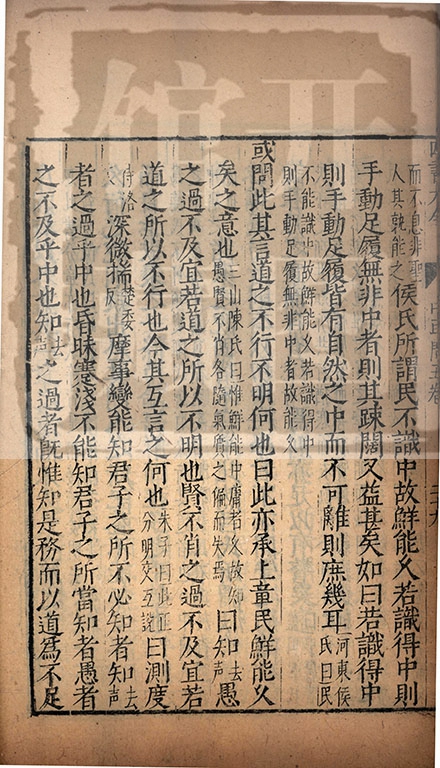 而不息非聖人其孰能之侯氏所謂民不識中故鮮能久若識得中則
手動足履無非中者則其踈闊又益甚矣如曰若識得中
則手動足履皆有自然之中而不可離則庶幾耳河東侯氏曰民
不能識中故鮮能久若識得中
則手動足履無非中者故能久
或問此其言道之不行不明何也曰此亦承上章民鮮能久
矣之意也三山陳氏曰惟鮮能中庸者久故知愚賢不肖各隨氣質之偏而失焉曰知去聲愚
之過不及宜若道之所以不明也賢不肖之過不及宜若
道之所以不行也今其互言之何也朱子曰此正分明交互說曰測度
待洛反深微揣楚委反摩事變能知君子之所不必知者知去聲
者之過乎中也昏昧蹇淺不能知君子之所當知者愚者
之不及乎中也知去聲之過者旣惟知是務而以道爲不足